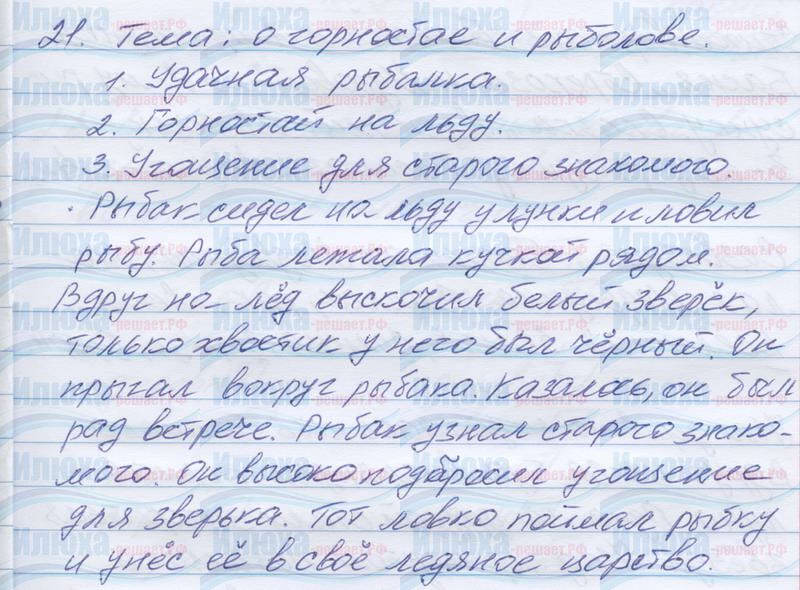 21. Тема: о горностае и рыболове.
1. Удачная рыбалка.
2. Горностай на льду.
3. Угощение для старого знакомого.
Рыбак сидел на льду у лунки и ловил
рыбу. Рыба лежала кучкой рядом.
Вдруг на лёд выскочил белый зверёк,
только хвостик у него был чёрный. Он
прыгал вокруг рыбака. Казалось, он был
рад встрече. Рыбак узнал старого знако-
мого. Он высоко подбросил угощение
для зверька. Тот ловко поймал рыбку
и унёс её в своё ледяное царство.